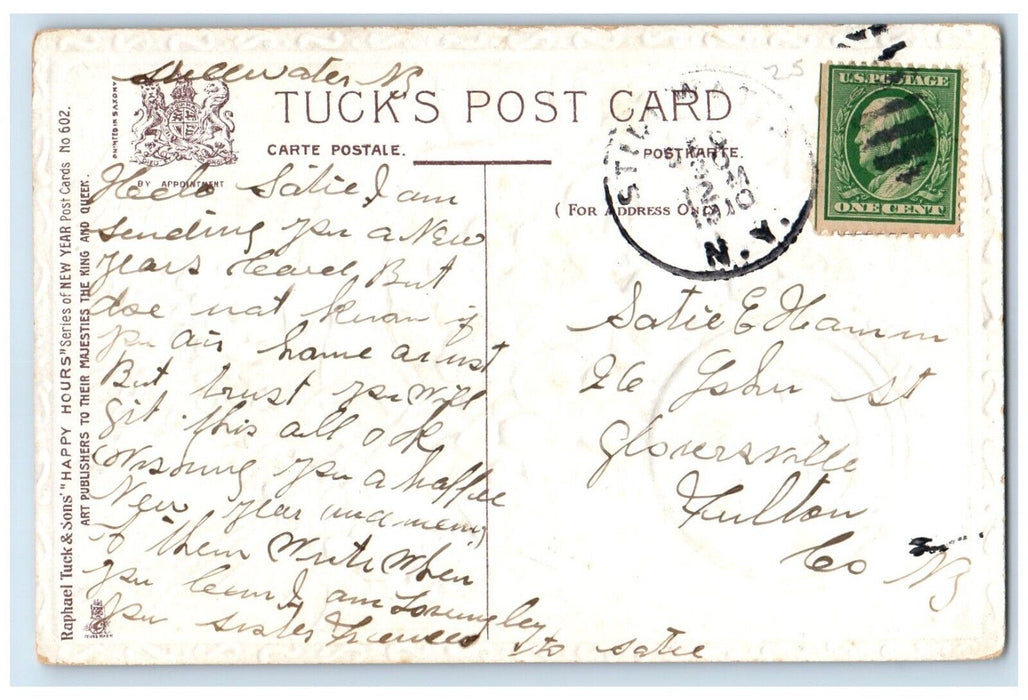 Stillwater NY
TUCK'S POST CARD
CARTE POSTALE.
POSTKARTE.
(FOR ADDRESS ONLY
PRINTED IN SAXONY
BY APPOINTMENT
Raphael Tuck & Sons' "HAPPY HOURS" Series of NEW YEAR Post Cards No 602.
ART PUBLISHERS TO THEIR MAJESTIES THE KING AND QUEEN.
STILLWA
DEC
30
1910
N.Y.
25
U.S. POSTAGE
ONE CENT
Hello Satie I am
sending you a New
years Card, But
doe not know if
you air home a nust
But trust you will
git this all ok
wisoung you a haffee
New year and meny
of them write when
you Can I am Loveingley
you sister Frances to Satie
Satie E Hamm
26 John St
Gloversville
Fulton
Co NY